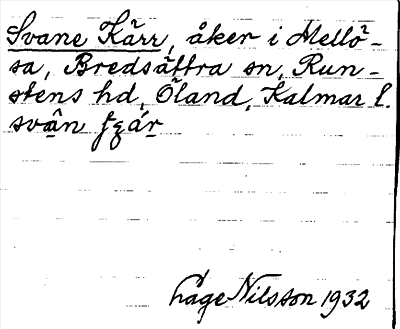 Svane Kärr, åker i Mellö-
sa, Bredsättra sn, Run-
stens hd, Öland, Kalmar l.
Åge Nilsson 1932